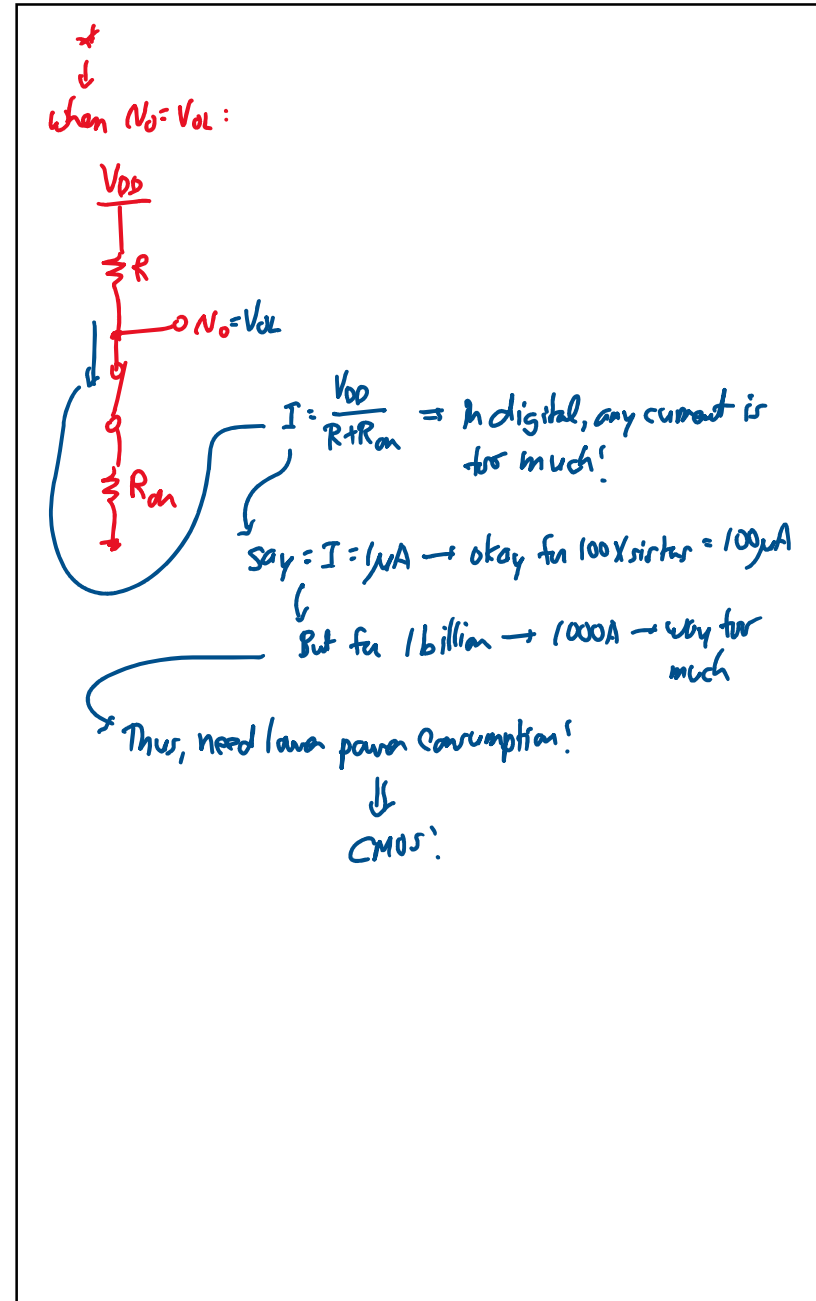 *
when v₀ = V_OL :
V_DD
R
v₀ = V_OL
I = V_DD / (R + R_on) ⇒ In digital, any current is
too much!
R_on
say = I = 1μA → okay for 100 Xsistors = 100μA
But for 1 billion → 1000A → way too
much
Thus, need lower power consumption!
⇓
CMOS!